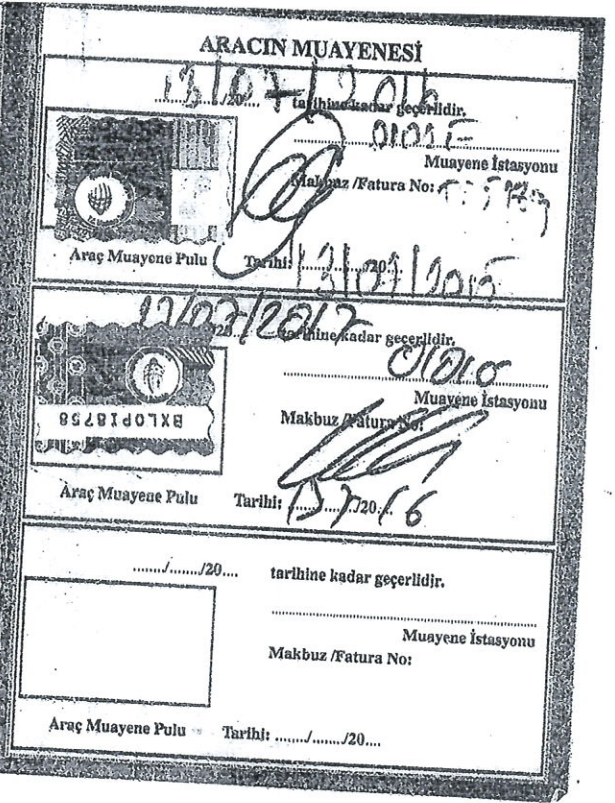 ARACIN MUAYENESİ
13/07/2016
......../......../20.... tarihine kadar geçerlidir.
Muayene İstasyonu
Makbuz /Fatura No:
Araç Muayene Pulu Tarihi: 13/07/2015
/20.... tarihine kadar geçerlidir.
Muayene İstasyonu
BXLOPI8758
Makbuz /Fatura No:
Araç Muayene Pulu Tarihi: ......../......../20.... 16
......../......../20.... tarihine kadar geçerlidir.
Muayene İstasyonu
Makbuz /Fatura No:
Araç Muayene Pulu Tarihi: ......../......../20....